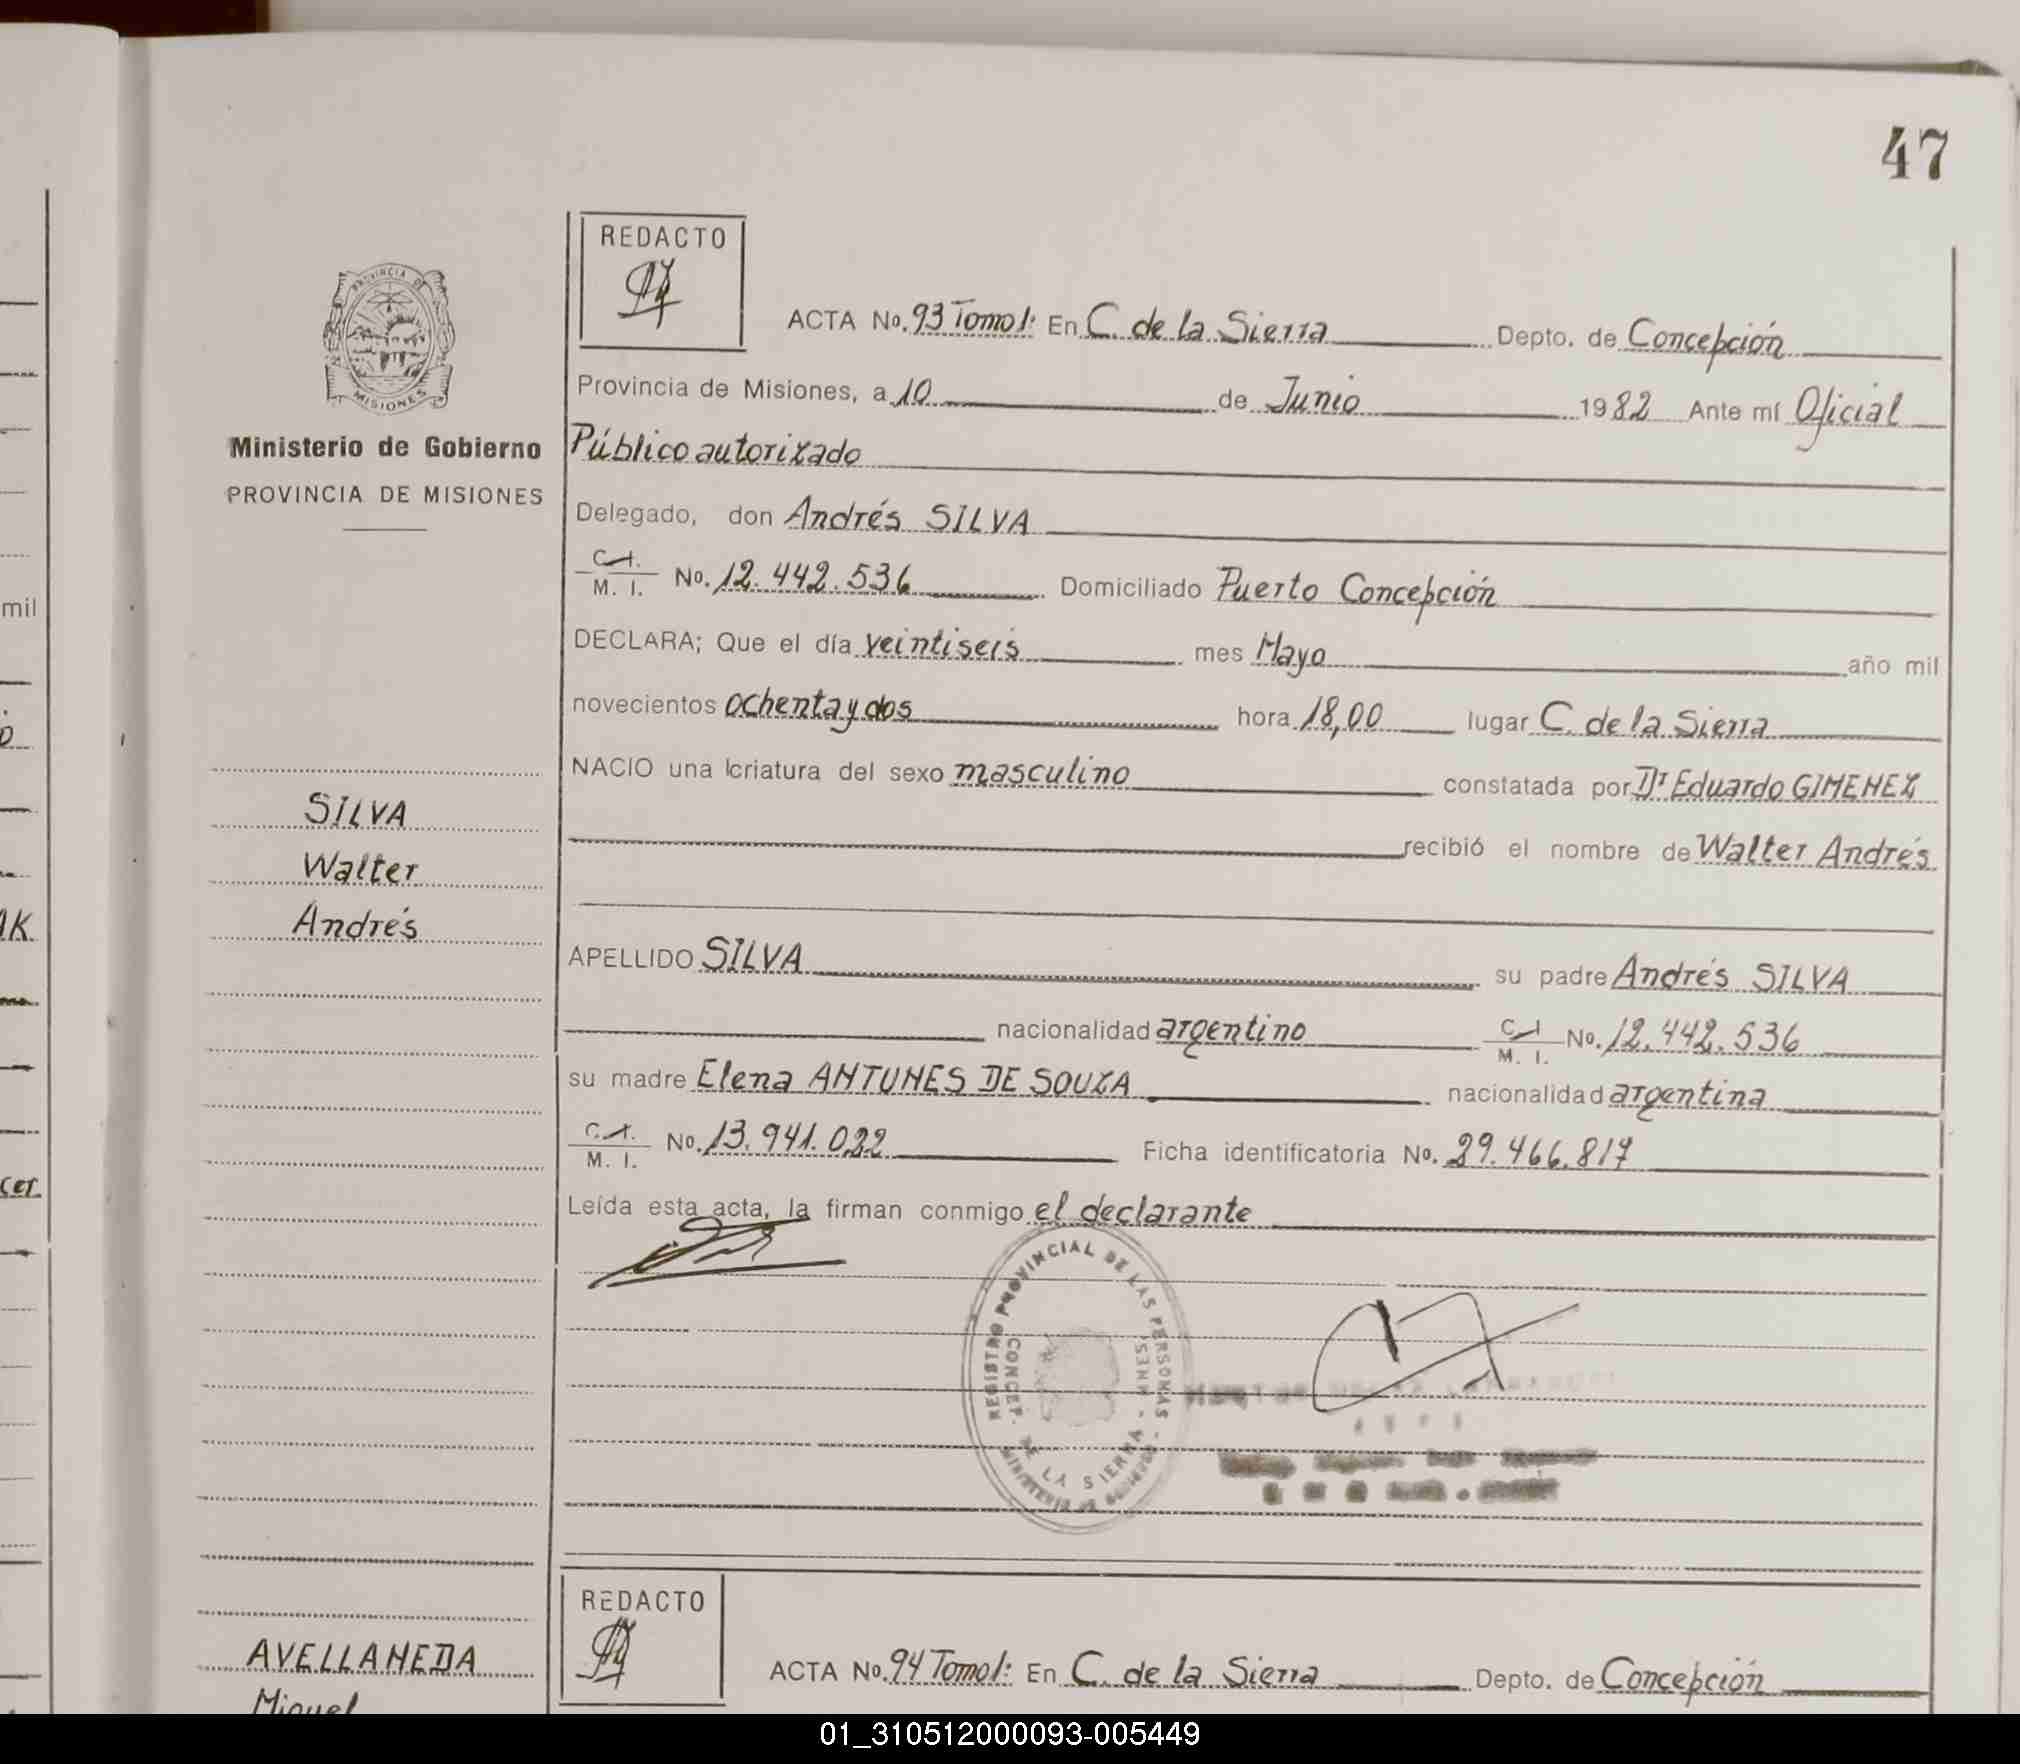 47
REDACTO
ACTA No. 93 Tomo 1: En C. de la Sierra Depto. de Concepción
Provincia de Misiones, a 10 de Junio 1982 Ante mí Oficial
Público autorizado
Delegado, don Andrés SILVA
C.I. M. I. No. 12.442.536 Domiciliado Puerto Concepción
DECLARA; Que el día veintiseis mes Mayo año mil
novecientos ochenta y dos hora 18,00 lugar C. de la Sierra
NACIO una criatura del sexo masculino constatada por Dr Eduardo GIMENEZ
recibió el nombre de Walter Andrés
APELLIDO SILVA su padre Andrés SILVA
nacionalidad argentino C.I. M. I. No. 12.442.536
su madre Elena ANTUNES DE SOUZA nacionalidad argentina
C.I. M. I. No. 13.941.022 Ficha identificatoria No. 29.466.817
Leída esta acta, la firman conmigo el declarante
REGISTRO PROVINCIAL DE LAS PERSONAS
CONCEP. DE LA SIERRA
PROVINCIA DE
MISIONES
Ministerio de Gobierno
PROVINCIA DE MISIONES
SILVA
Walter
Andrés
mil
AVELLANEDA
Miguel
REDACTO
ACTA No. 94 Tomo 1: En C. de la Sierra Depto. de Concepción
01_310512000093-005449